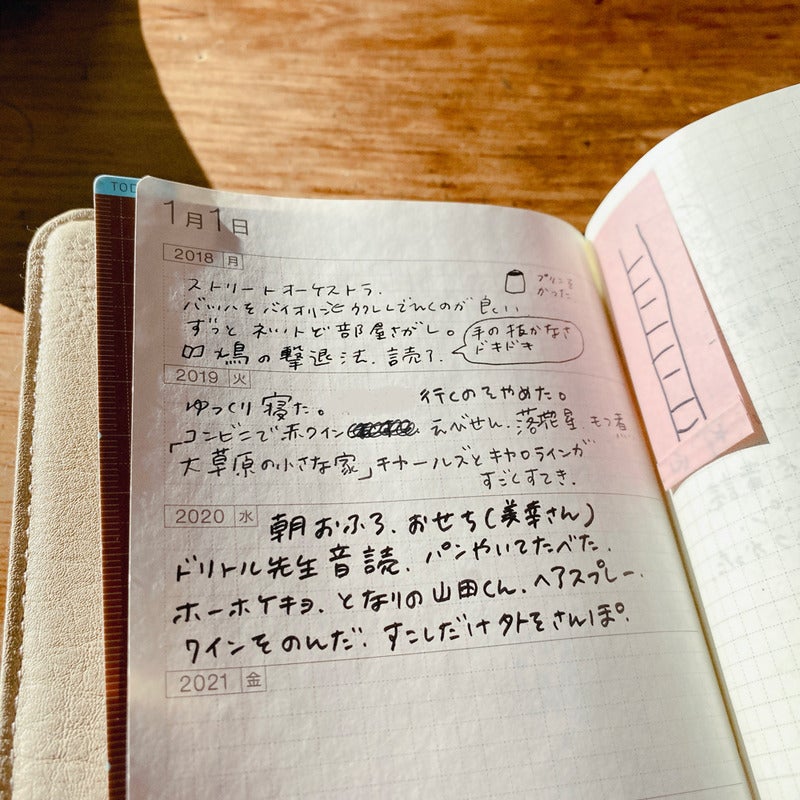 TOD
1月1日
2018 月
ストリートオーケストラ.
プリンを
かった
バッハをバイオリンとウクレレでひくのが良い
ずっとネットで部屋さがし。
手の抜かなさ
ドキドキ
の撃退法.読了.
2019 火
ゆっくり寝た。 行くのをやめた。
コンビニで赤ワイン えびせん.落花星.もつ煮
「大草原の小さな家」チャールズとキャロラインが
すごくすてき.
2020 水
朝おふろ.おせち(美幸さん)
ドリトル先生音読.パンやいてたべた.
ホーホケキョ.となりの山田くん.ヘアスプレー.
ワインをのんだ.すこしだけ外をさんぽ.
2021 金